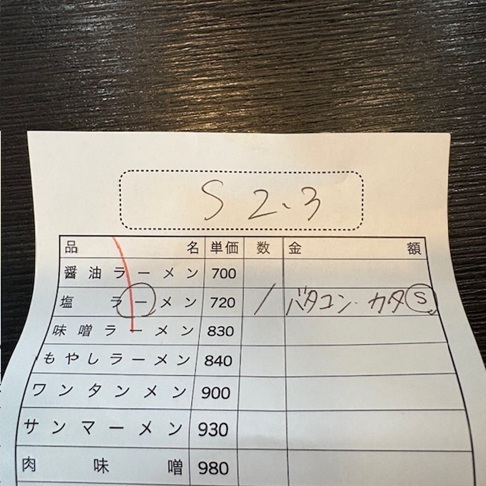 S 2、3
品名 単価 数 金額
醤油ラーメン 700
塩ラーメン 720 / バタコン・カタ Ⓢ
味噌ラーメン 830
もやしラーメン 840
ワンタンメン 900
サンマーメン 930
肉味噌 980